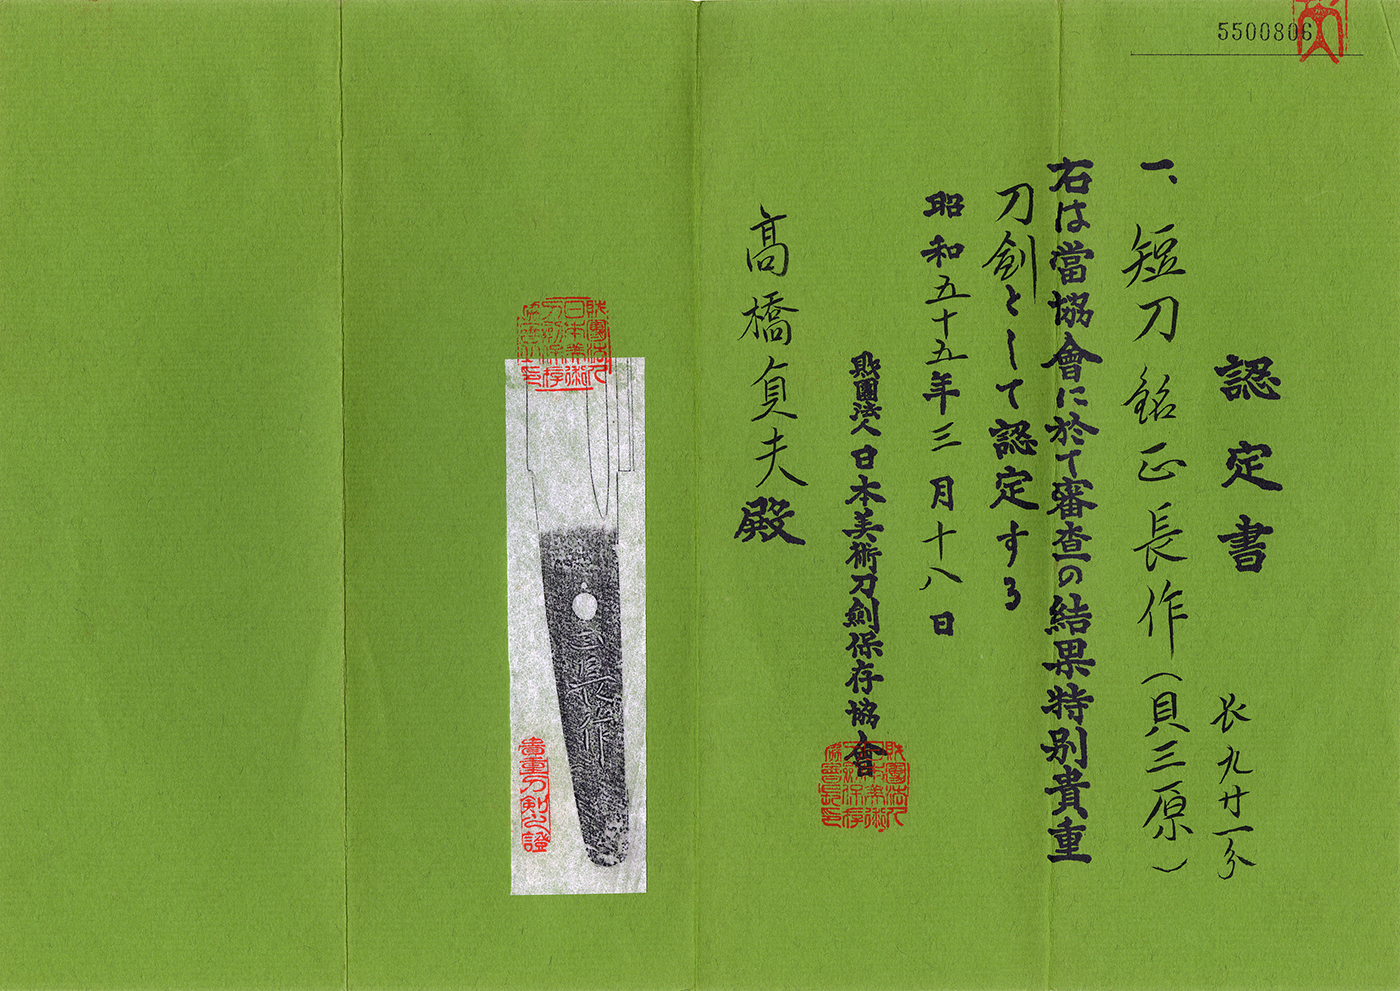 5500806
認定書
長九寸一分
一、短刀 銘 正長作(貝三原)
右は當協會に於て審査の結果特別貴重
刀劍として認定する
昭和五十五年三月十八日
財團法人日本美術刀劍保存協會
高橋貞夫殿
財團法人日本美術刀劍保存協會長印
正長作
貴重刀剣之證